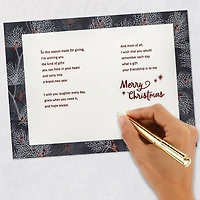 In this season made for giving,
I'm wishing you
the kind of gifts
you can hold in your heart
and carry into
a brand-new year.
I wish you laughter every day,
grace when you need it,
and hope always.
And most of all,
I wish that you would
remember each day
what a gift
your friendship is to me.
Merry
Christmas